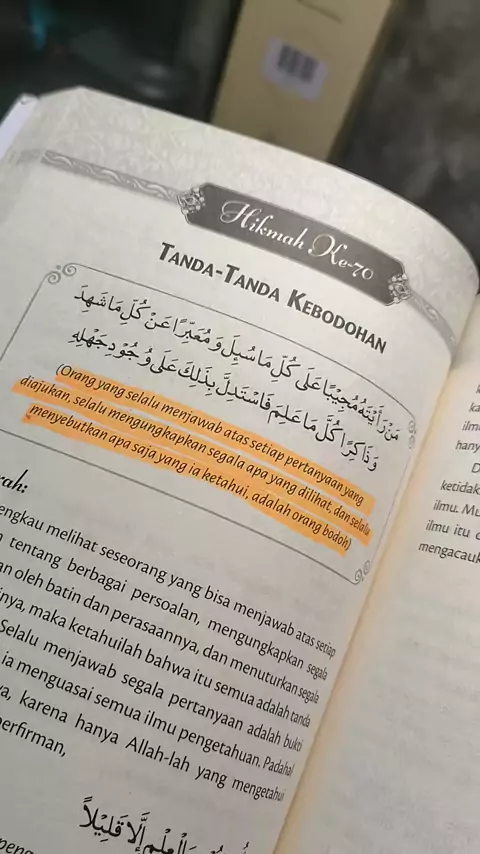 Hikmah Ke-70
TANDA-TANDA KEBODOHAN
مَنْ رَأَيْتَهُ مُجِيْبًا عَلَى كُلِّ مَا سُئِلَ وَمُعَبِّرًا عَنْ كُلِّ مَا شَهِدَ
وَذَاكِرًا كُلَّ مَا عَلِمَ فَاسْتَدِلَّ بِذَلِكَ عَلَى وُجُوْدِ جَهْلِهِ
(Orang yang selalu menjawab atas setiap pertanyaan yang
diajukan, selalu mengungkapkan segala apa yang dilihat, dan selalu
menyebutkan apa saja yang ia ketahui, adalah orang bodoh)
engkau melihat seseorang yang bisa menjawab atas setiap
tentang berbagai persoalan, mengungkapkan segala
oleh batin dan perasaannya, dan menuturkan segala
maka ketahuilah bahwa itu semua adalah tanda
Selalu menjawab segala pertanyaan adalah bukti
ia menguasai semua ilmu pengetahuan. Padahal
karena hanya Allah-lah yang mengetahui
الْعِلْمِ إِلَّا قَلِيْلًا
ilmu
hany
D
ketidak
ilmu. Mu
ilmu itu
mengacauk